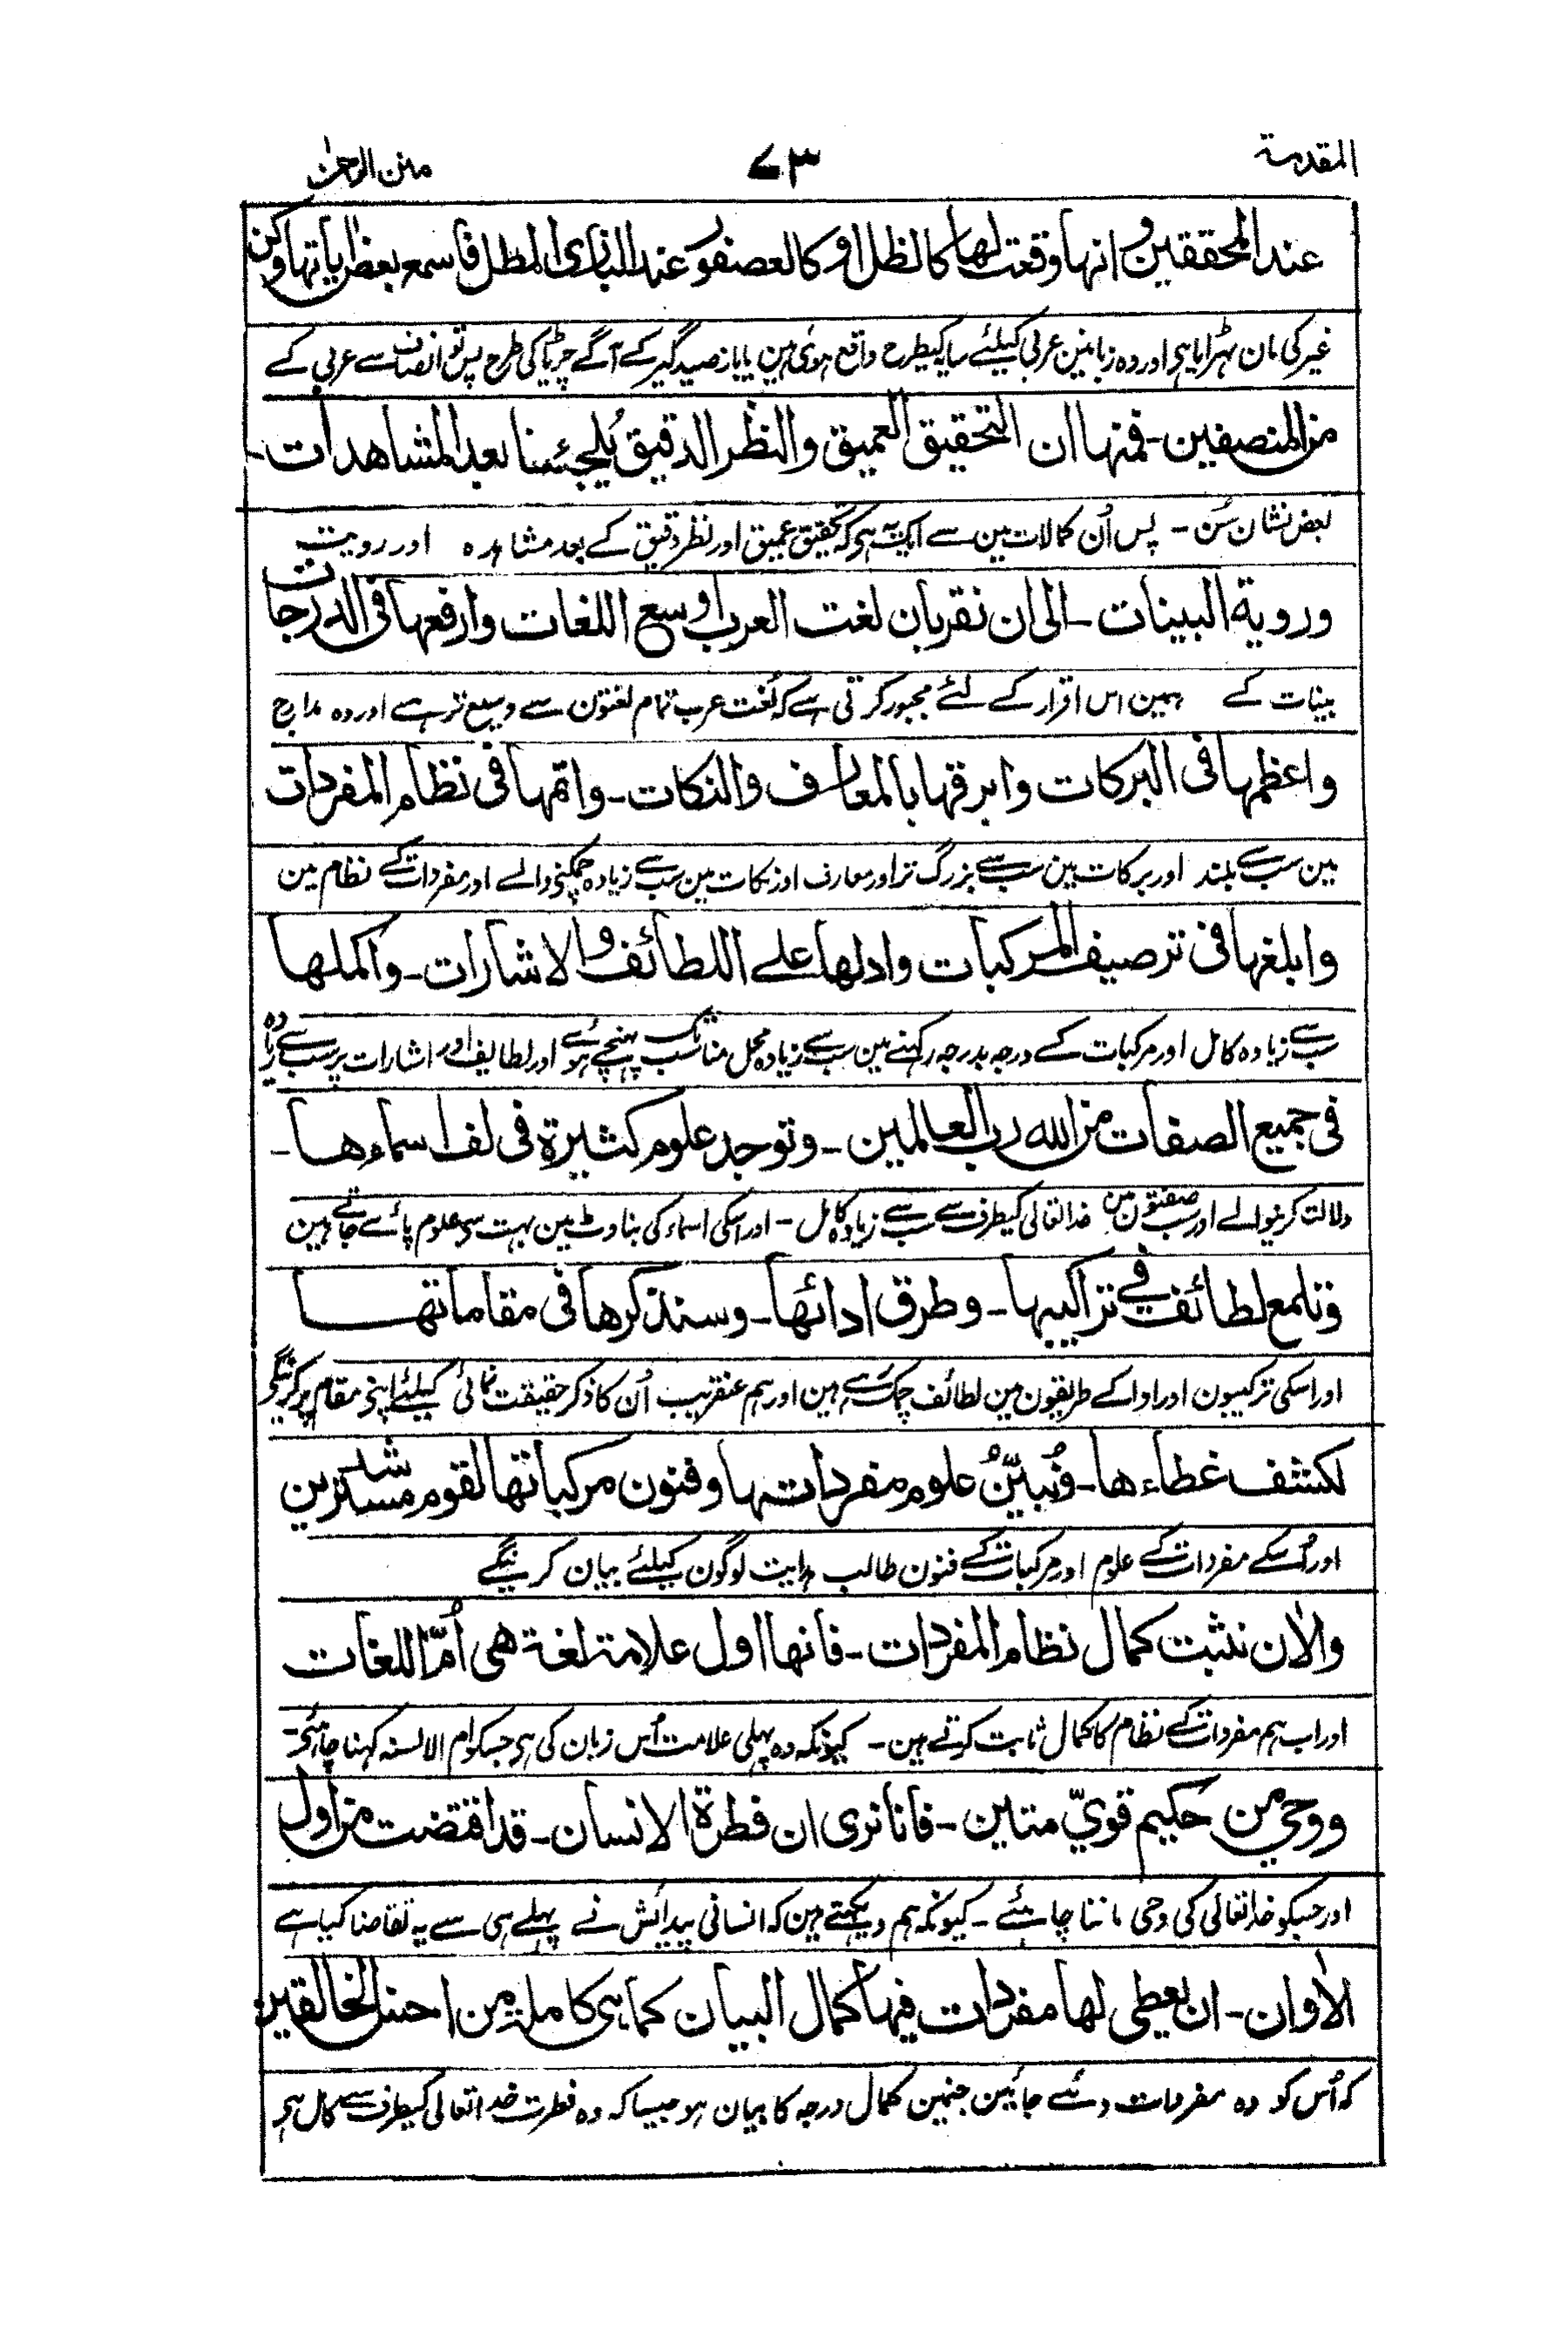 المقدمة ٧٣ منن الرحمٰن
عند المحققين و انها وقعت لها كالظل او كالعصفور عند البازى المطل فاسمع بعض اٰياتها وكن
غیر کی مان ٹہرایا ہی اور وہ زبانین عربی کیلئے سایہ کیطرح واقع ہوئی ہین یا باز صیدگیر کے آگے چڑیا کی طرح پس تو انصاف سے عربی کے
من المنصفين - فمنها ان التحقيق العميق والنظر الدقيق يُلجئنا بعد المشاهدات
بعض نشان سُن - پس اُن کمالات مین سے ایک یہ ہی کہ تحقیق عمیق اور نظر دقیق کے بعد مشاہدہ اور رویت
وروية البينات - الى ان نقربان لغت العرب اوسع اللغات وارفعها فى الدرجات
بینات کے ہمین اس اقرار کے لئے مجبور کرتی ہے کہ لُغت عرب تمام لغتون سے وسیع تر ہے اور وہ مدارج
واعظمها فى البركات وابرقها بالمعارف والنكات - واتمها فى نظام المفردات
مین سب سے بلند اور برکات مین سب سے بزرگ تر اور معارف اور نکات مین سب سے زیادہ چمکنی والے اور مفردات کے نظام مین
وابلغها فى ترصيف المركبات وادلها على اللطائف والاشارات - واكملها
سب سے زیادہ کامل اور مرکبات کے درجہ بدرجہ رکہنے مین سب سے زیادہ محل مناسب تک پہنچے ہوئے اور لطایف اور اشارات پر سب سے زیادہ
فى جميع الصفات من الله رب العالمين - وتوجد علوم كثيرة فى لف اسماءها -
دلالت کرنیوالے اور سب صفتون مین خدا تعالی کیطرف سے سب سے زیادہ کامل - اور اسکی اسماء کی بناوٹ مین بہت سی علوم پائے جاتے ہین
وتلمع لطائف في تراكيبها - وطرق ادائها - وسنذكرها فى مقاماتها
اور اسکی ترکیبون اور ادا کے طریقون مین لطائف چمک رہے ہین اور ہم عنقریب اُن کا ذکر حقیقت نمائی کیلئے اپنی مقام پر کرینگے
لكشف غطاءها - ونُبيّنُ علوم مفرداتها وفنون مركباتها لقوم مسترشدين
اور اُسکے مفردات کے علوم اور مرکبات کے فنون طالب ہدایت لوگون کیلئے بیان کرینگے
والاٰن نثبت كمال نظام المفردات - فانها اول علامة لغة هى اُمّ اللغات
اور اب ہم مفردات کے نظام کا کمال ثابت کرتے ہین - کیونکہ وہ پہلی علامت اُس زبان کی ہی جسکو ام الالسنہ کہنا چاہئے -
ووحي من حكيم قويّ متين - فانا نرى ان فطرة الانسان - قد اقتضت من اول
اور جسکو خدا تعالی کی وحی ماننا چاہئے - کیونکہ ہم دیکہتے ہین کہ انسانی پیدائش نے پہلے ہی سے یہ تقاضا کیا ہے
الاٰوان - ان يعطى لها مفردات فيها كمال البيان كما هى كاملة من احسن الخالقين
کہ اُس کو وہ مفردات دئے جائین جنمین کمال درجہ کا بیان ہو جیسا کہ وہ فطرت خدا تعالی کیطرف سے کامل ہی